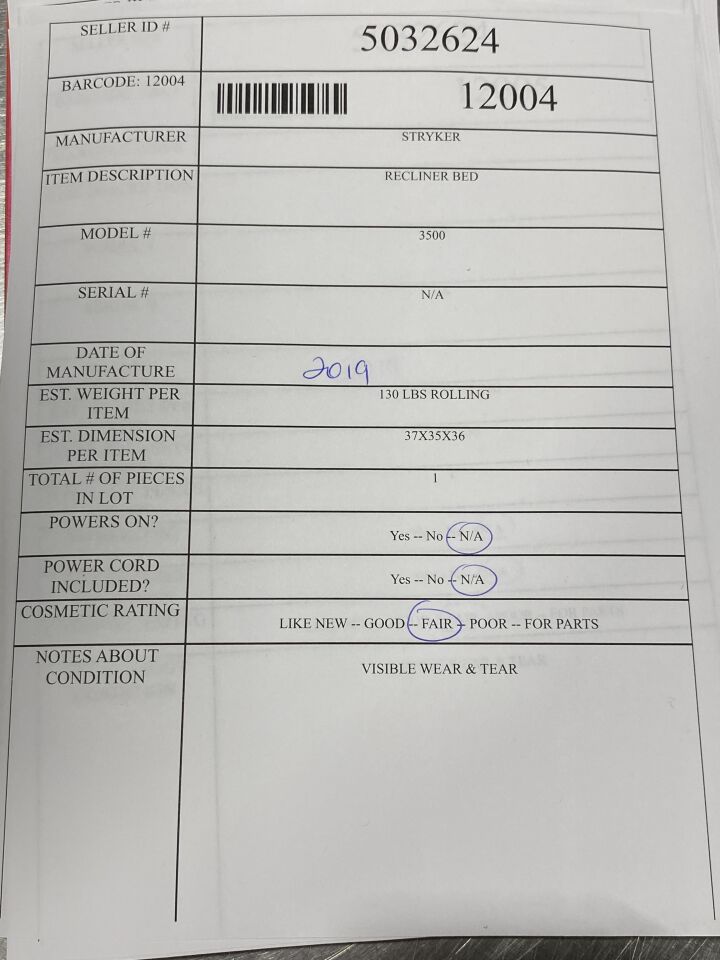 SELLER ID #
5032624
BARCODE: 12004
12004
MANUFACTURER
STRYKER
ITEM DESCRIPTION
RECLINER BED
MODEL #
3500
SERIAL #
N/A
DATE OF
MANUFACTURE
2019
EST. WEIGHT PER
ITEM
130 LBS ROLLING
EST. DIMENSION
PER ITEM
37X35X36
TOTAL # OF PIECES
IN LOT
1
POWERS ON?
Yes -- No -- N/A
POWER CORD
INCLUDED?
Yes -- No -- N/A
COSMETIC RATING
LIKE NEW -- GOOD -- FAIR -- POOR -- FOR PARTS
NOTES ABOUT
CONDITION
VISIBLE WEAR & TEAR